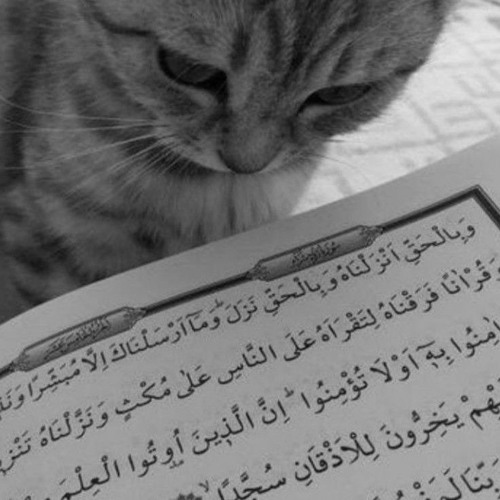 وَبِالْحَقِّ اَنْزَلْنَاهُ وَبِالْحَقِّ نَزَلَ وَمَٓا اَرْسَلْنَاكَ اِلَّا مُبَشِّرًا
وَقُرْاٰنًا فَرَقْنَاهُ لِتَقْرَاَهُ عَلَى النَّاسِ عَلٰى مُكْثٍ وَنَزَّلْنَاهُ
اٰمِنُوا بِهٖٓ اَوْ لَا تُؤْمِنُوا اِنَّ الَّذٖينَ اُوتُوا الْعِلْمَ
يَخِرُّونَ لِلْاَذْقَانِ سُجَّدًا